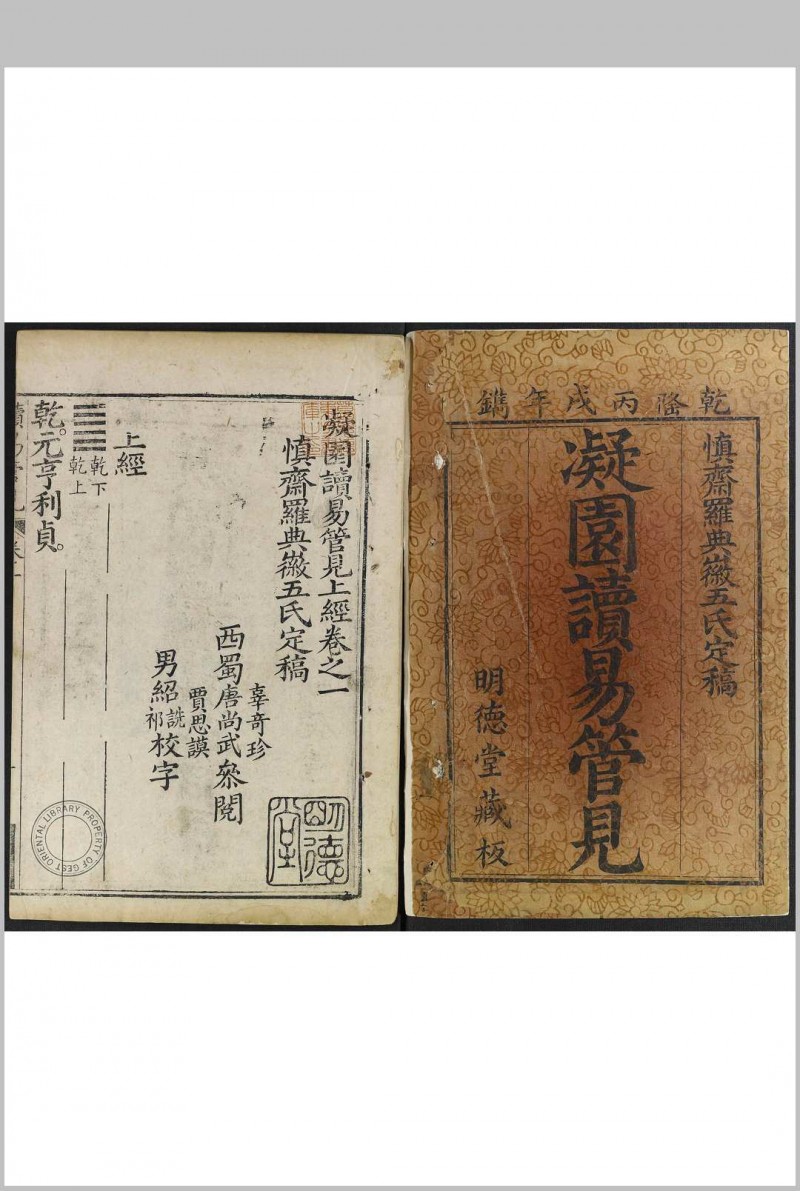 乾隆丙戌年鐫
慎齋羅典徽五氏定稿
凝園讀易管見
明德堂藏板
凝園讀易管見上經卷之一
慎齋羅典徽五氏定稿
辜奇珍
西蜀唐尚武叅閱
賈思謨
男紹詵祁校字
明德堂
上經
乾下
乾上
乾。元亨利貞。
PROPERTY OF GEST ORIENTAL LIBRARY